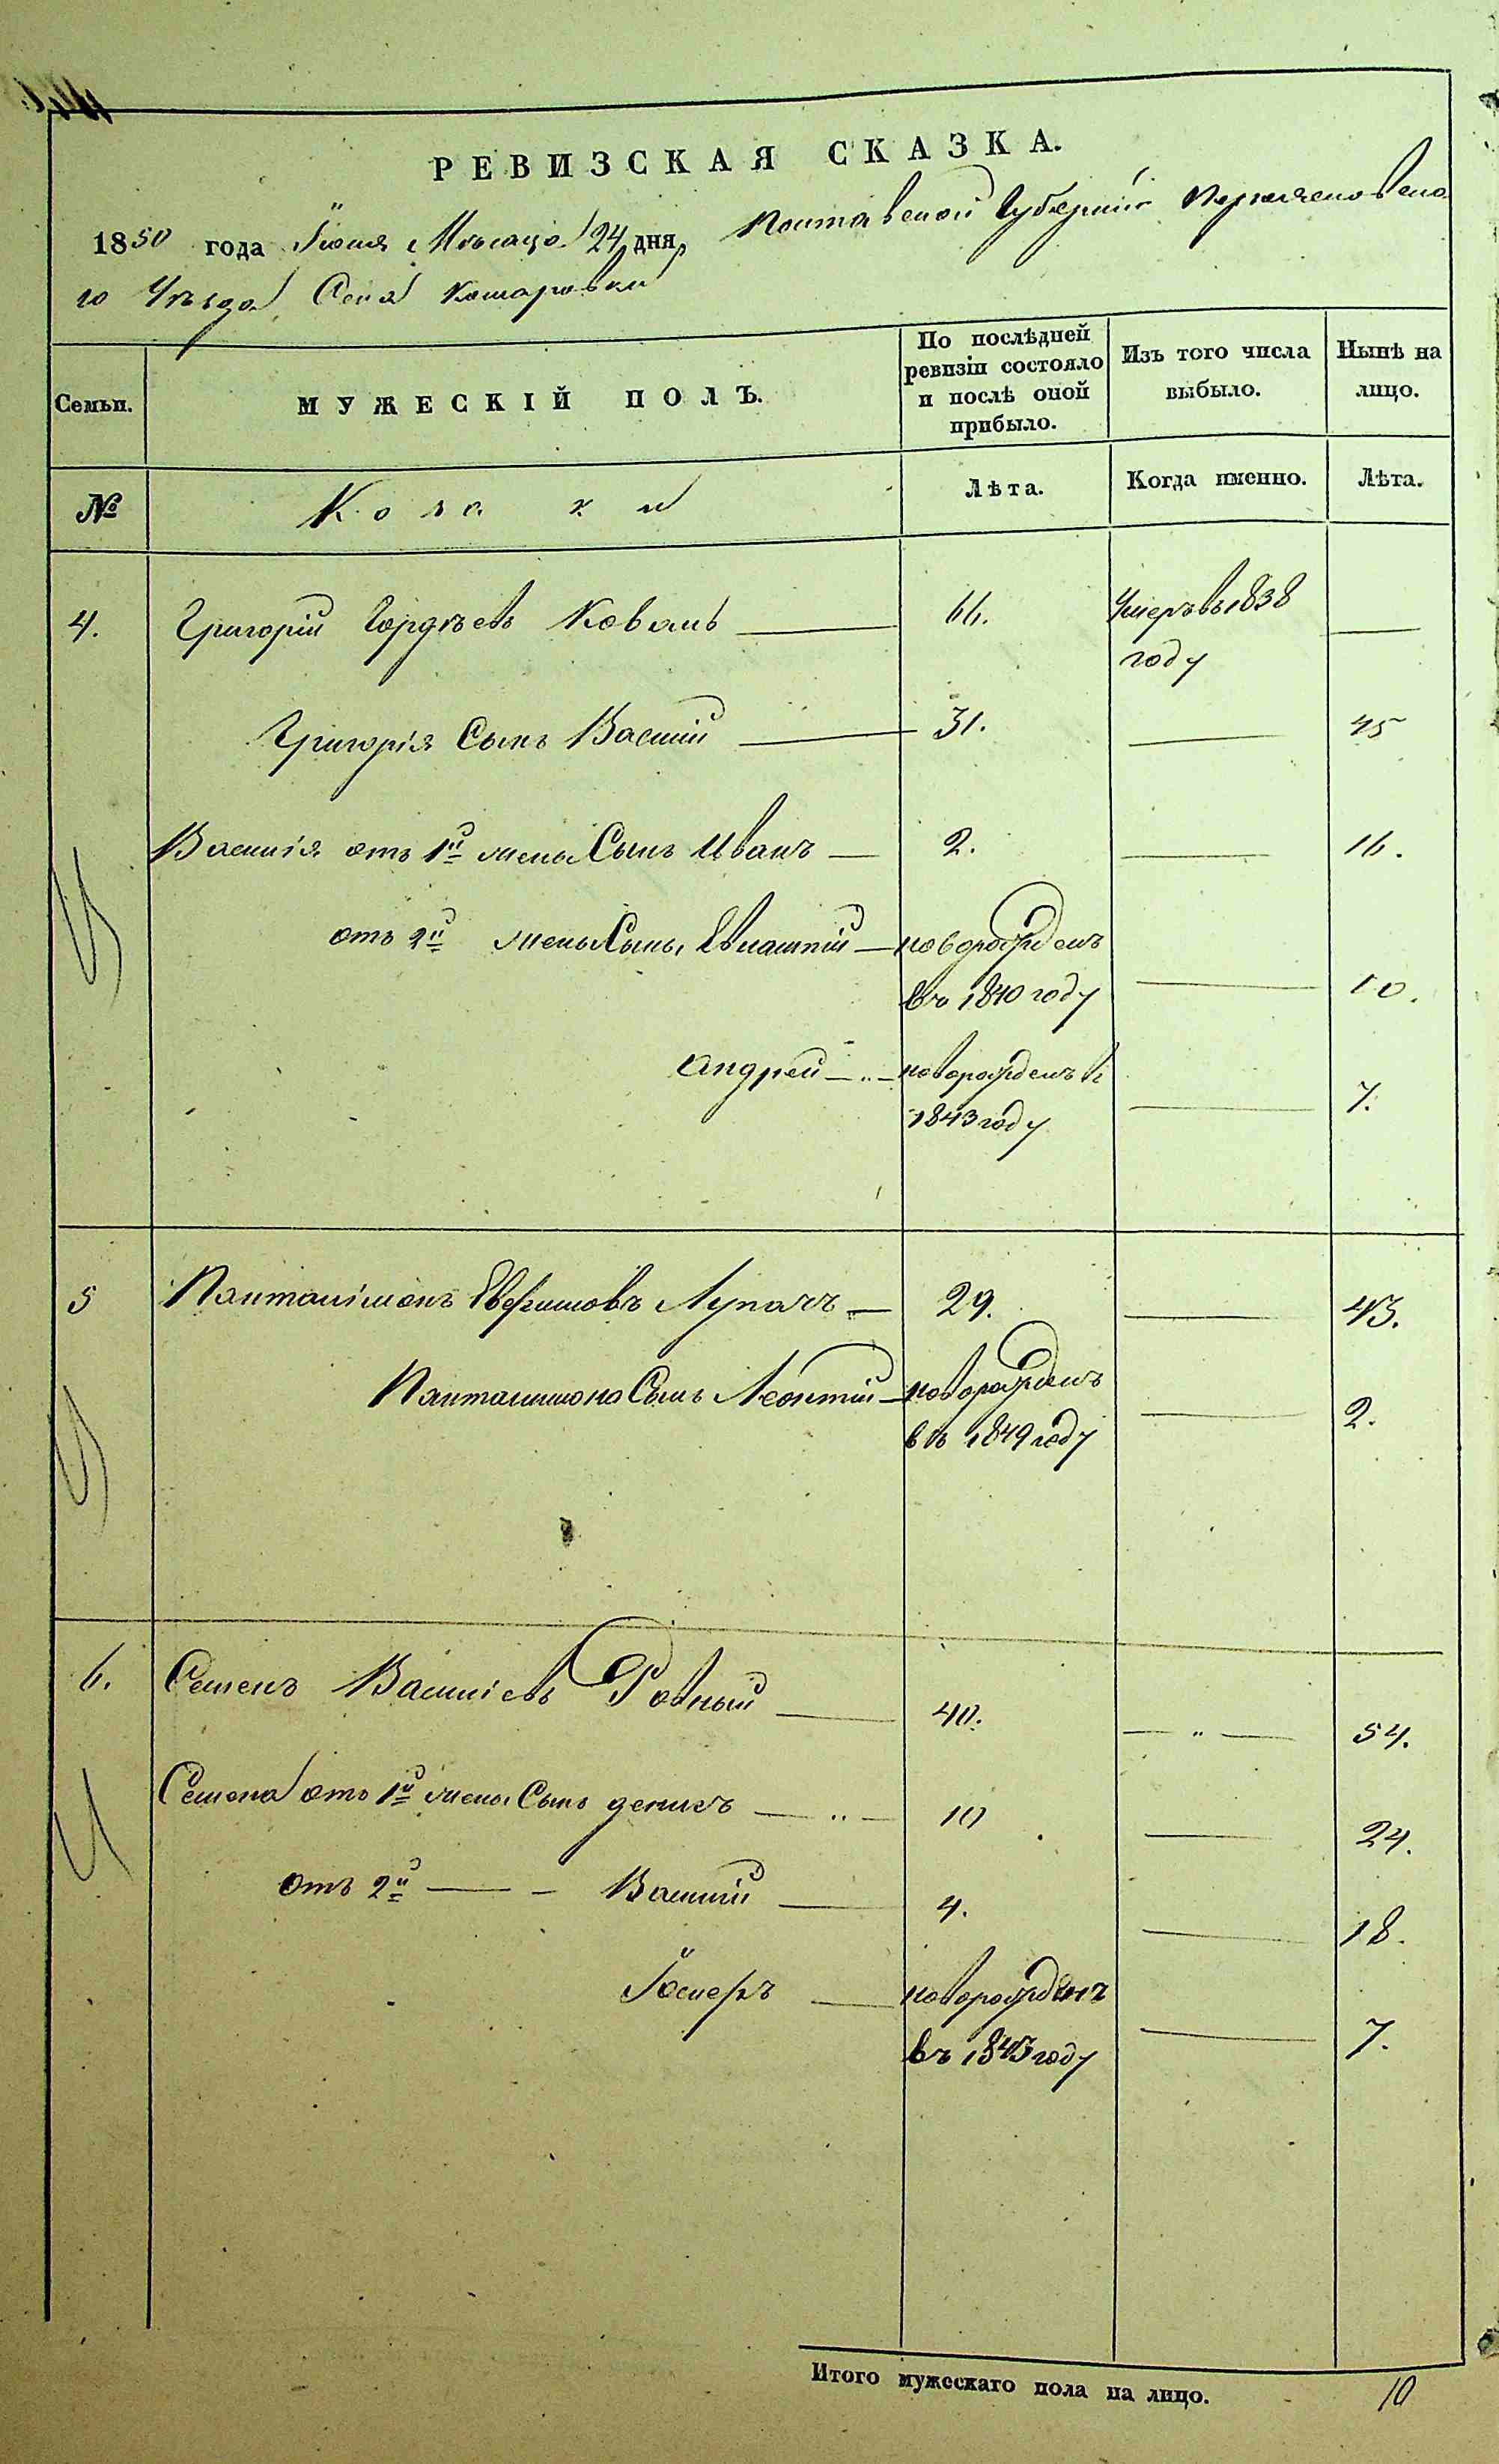 РЕВИЗСКАЯ СКАЗКА.
1850 года Іюня Мѣсяца 24 дня, Полтавской Губерніи Переяславска
го Уѣзда, Села Комаровки
Семьи.
МУЖЕСКІЙ ПОЛЪ.
По послѣдней ревизіи состояло и послѣ оной прибыло.
Изъ того числа выбыло.
Нынѣ на лицо.
№
Козаки
Лѣта.
Когда именно.
Лѣта.
4. Григорій Гордѣевъ Коваль 66. Умеръ въ 1838
году
Григорія Сынъ Василій 31. 45
Василія отъ 1й жены Сынъ Иванъ 2. 16.
отъ 2й жены Сынъ Евлампій новорожденъ
въ 1840 году 10.
Андрей новорожденъ в
1843 году 7.
5 Панталімонъ Евфимовъ Лупачъ 29. 43.
Панталимона Сынъ Леонтій новорожденъ
въ 1849 году 2.
6. Семенъ Василіевъ Ровный 40. 54.
Семена отъ 1й жены Сынъ денисъ 10 24.
отъ 2й Василій 4. 18.
Іосифъ новорожденъ
въ 1843 году 7.
Итого мужескаго пола на лицо. 10